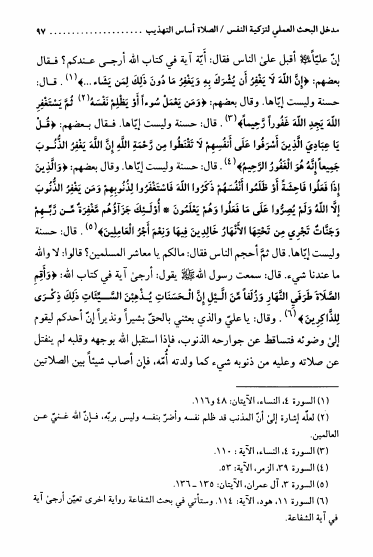 مدخل البحث العملي لتزكية النفس / الصلاة أساس التهذيب ........................ ٩٧
إنّ عليّاًﷺ أقبل على الناس فقال: أيّة آية في كتاب الله أرجى عندكم؟ فقال
بعضهم: ﴿إِنَّ اللهَ لَا يَغْفِرُ أَن يُشْرَكَ بِهِ وَيَغْفِرُ مَا دُونَ ذَلِكَ لِمَن يَشَاء ...﴾(١). قال:
حسنة وليست إيّاها. وقال بعضهم: ﴿وَمَن يَعْمَلْ سُوءاً أَوْ يَظْلِمْ نَفْسَهُ(٢) ثُمَّ يَسْتَغْفِرِ
اللهَ يَجِدِ اللهَ غَفُوراً رَّحِيماً﴾(٣). قال: حسنة وليست إيّاها. فقال بعضهم: ﴿قُلْ
يَا عِبَادِيَ الَّذِينَ أَسْرَفُوا عَلَى أَنفُسِهِمْ لَا تَقْنَطُوا مِن رَّحْمَةِ اللهِ إِنَّ اللهَ يَغْفِرُ الذُّنُوبَ
جَمِيعاً إِنَّهُ هُوَ الْغَفُورُ الرَّحِيمُ﴾(٤). قال: حسنة وليست إيّاها. وقال بعضهم: ﴿وَالَّذِينَ
إِذَا فَعَلُوا فَاحِشَةً أَوْ ظَلَمُوا أَنْفُسَهُمْ ذَكَرُوا اللهَ فَاسْتَغْفَرُوا لِذُنُوبِهِمْ وَمَن يَغْفِرُ الذُّنُوبَ
إِلَّا اللهُ وَلَمْ يُصِرُّوا عَلَى مَا فَعَلُوا وَهُمْ يَعْلَمُونَ * أُوْلَـئِكَ جَزَآؤُهُم مَّغْفِرَةٌ مِّن رَّبِّهِمْ
وَجَنَّاتٌ تَجْرِي مِن تَحْتِهَا الأَنْهَارُ خَالِدِينَ فِيهَا وَنِعْمَ أَجْرُ الْعَامِلِينَ﴾(٥). قال: حسنة
وليست إيّاها. قال ثمّ أحجم الناس فقال: مالكم يا معاشر المسلمين؟ قالوا: لا والله
ما عندنا شيء. قال: سمعت رسول اللهﷺ يقول: أرجىٰ آية في كتاب الله: ﴿وَأَقِمِ
الصَّلَاةَ طَرَفَيِ النَّهَارِ وَزُلَفاً مِّنَ الَّيْلِ إِنَّ الْحَسَنَاتِ يُذْهِبْنَ السَّـيِّئَاتِ ذَلِكَ ذِكْرَى
لِلذَّاكِرِينَ﴾(٦). وقال: يا عليّ والذي بعثني بالحقّ بشيراً ونذيراً إنّ أحدكم ليقوم
إلى وضوئه فتساقط عن جوارحه الذنوب، فإذا استقبل الله بوجهه وقلبه لم ينفتل
عن صلاته وعليه من ذنوبه شيء كما ولدته أُمّه، فإن أصاب شيئاً بين الصلاتين
(١) السورة ٤، النساء، الآيتان: ٤٨ و١١٦.
(٢) لعلّه إشارة إلى أنّ المذنب قد ظلم نفسه وأضرّ بنفسه وليس بربّه، فـإنّ الله غـنيّ عـن
العالمين.
(٣) السورة ٤، النساء، الآية: ١١٠.
(٤) السورة ٣٩، الزمر، الآية: ٥٣.
(٥) السورة ٣، آل عمران، الآيتان: ١٣٥ ـ ١٣٦.
(٦) السورة ١١، هود، الآية: ١١٤. وستأتي في بحث الشفاعة رواية اخرى تعيّن أرجىٰ آية
في آية الشفاعة.